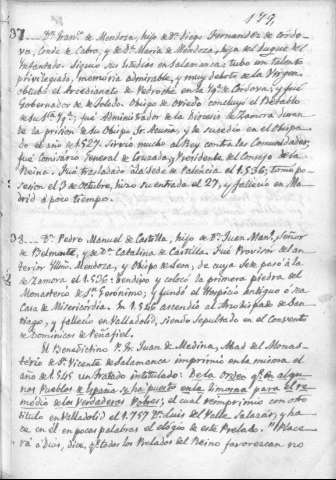 179,
37 Dn. Franco. de Mendoza, hijo de Dn. Diego Fernandez de Cordo-
va, Conde de Cabra, y de Da. Maria de Mendoza, hija del duque del
Infantado. Siguió sus estudios en Salamanca: tubo un talento
privilegiado, memoria admirable, y muy deboto de la Virgen.
obtubo el Arcedianato de Pedroche en la Yga. de Cordova; y fué
Gobernador de Toledo. Obispo de Oviedo concluyó el Retablo
de su Sta. Yga.; fué Administrador de la Diocesis de Zamora duran
de la prision de su Obispo Sr. Acuña, y le sucedio en el Obispa-
do el año de 1527. Sirvió mucho al Rey contra las Comunidades,
fué Comisario General de Cruzada, y Presidente del Consejo de la
Reina. Fué trasladado á la Sede de Palencia el 1.536; tomo po-
sesion el 3 de octubre, hizo su entrada el 27, y fallecio en Ma-
drid á poco tiempo.
38. Dn. Pedro Manuel de Castilla, hijo de Dn. Juan Manl., Señor
de Belmonte, y de Da. Catalina de Castilla. Fué Provisor del an-
terior Yllmo. Mendoza, y Obispo de Leon, de cuya Sede pasó á la
de Zamora el 1.536: bendijo y colocó la primera piedra del
Monasterio de Sn. Gerónimo, y fundó el Hospicio antiguo ó sea
Casa de Misericordia. En 1.546 ascendió al Arzobispado de San-
tiago, y falleció en Valladolid, siendo sepultado en el Convento
de Dominicos de Peñafiel.
El Benedictino P. Fr. Juan de Medina, Abad del Monas-
terio de Sn. Vicente de Salamanca imprimió en la misma el
año de 1.545 un tratado intitulado: De la orden qe. en algu-
nos Pueblos de España se ha puesto en la limosna para el re-
medio de los verdaderos Pobres; el cual reimprimio con otro
titulo en Valladolid el 1.757 Dn. Luis del Valle Salazar, y ha-
ce en él en pocas palabras el elogio de este Prelado. "Place-
rá á Dios, dice, qe. todos los Prelados del Reino favorescan no